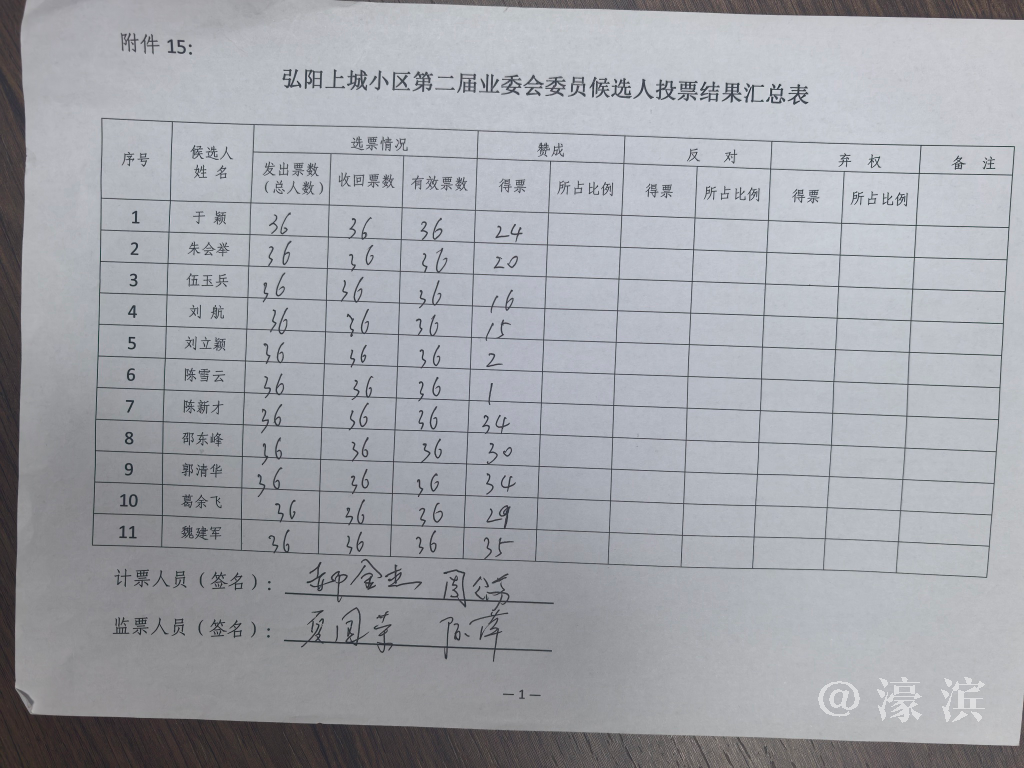 附件 15:
弘阳上城小区第二届业委会委员候选人投票结果汇总表
序号 候选人姓名 选票情况 赞成 反 对 弃 权 备 注
发出票数（总人数） 收回票数 有效票数 得票 所占比例 得票 所占比例 得票 所占比例
1 于 颖 36 36 36 24
2 朱会举 36 36 36 20
3 伍玉兵 36 36 36 16
4 刘 航 36 36 36 15
5 刘立颖 36 36 36 2
6 陈雪云 36 36 36 1
7 陈新才 36 36 36 34
8 邵东峰 36 36 36 30
9 郭清华 36 36 36 34
10 葛余飞 36 36 36 29
11 魏建军 36 36 36 35
计票人员（签名）：
监票人员（签名）：
— 1 —
@濠滨